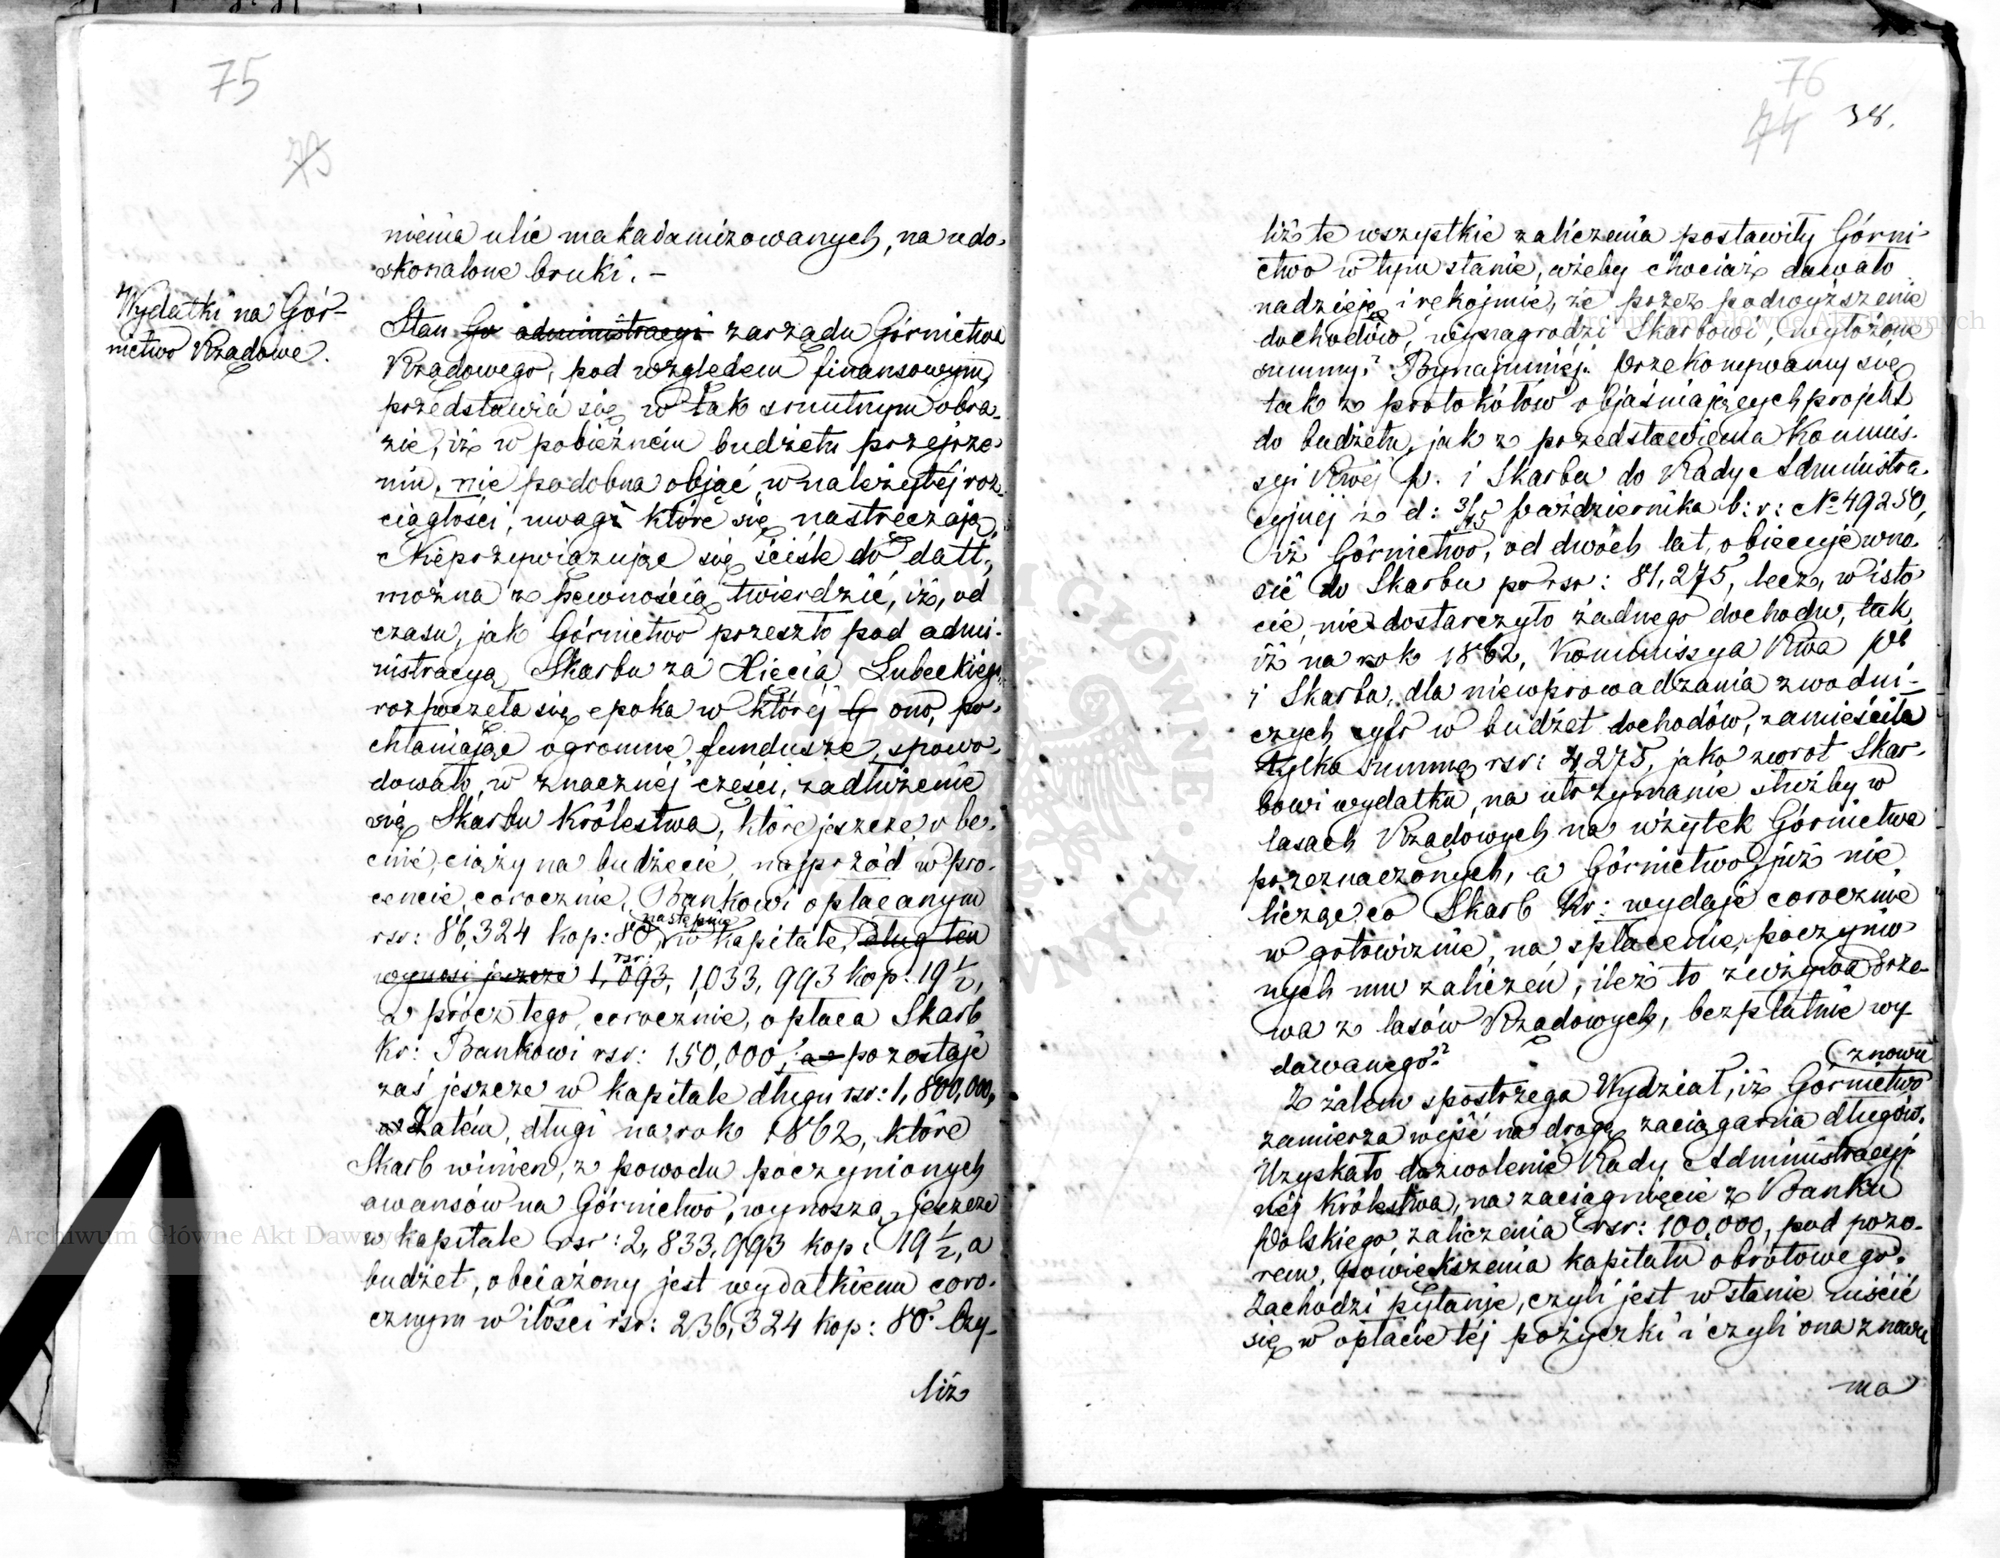 75
73
nienia ulic makadamizowanych, na udo-
skonalone bruki. –
Wydatki na Gór-
nictwo Rządowe.
Stan Gó administracyi zarządu Górnictwa
Rządowego, pod względem finansowym,
przedstawia się w tak smutnym obra-
zie, iż w pobieżném budżetu przejrze-
niu, nie podobna objąć, w należytéj roz-
ciągłości, uwagi które się nastręczają.
Nieprzywiązując się ściśle do datt,
można z pewnością twierdzić, iż, od
czasu, jak Górnictwo przeszło pod admi-
nistracyą Skarbu za Xięcia Lubeckiego,
rozpoczęła się epoka w któréj G ono, po-
chłaniając ogromne fundusze, spowo-
dowało, w znacznéj części, zadłużenie
się Skarbu Królestwa, które jeszcze obe-
cnie, ciąży na budżecie, najprzód w pro-
cencie, corocznie, Bankowi opłacanym
rsr: 86,324 kop: 80, następnie w kapitale, dług ten
wynosi jeszcze 1,093, rsr: 1,033,993 kop: 19½,
a prócz tego, corocznie, opłaca Skarb
Kr: Bankowi rsr: 150,000, a pozostaje
zaś jeszcze w kapitale długu rsr: 1,800,000,
Zatém, długi na rok 1862, które
Skarb winien, z powodu poczynionych
awansów na Górnictwo, wynoszą jeszcze
w kapitale rsr: 2,833,993 kop: 19½, a
budżet, obciążony jest wydatkiem coro-
cznym w ilości rsr: 236,324 kop: 80. Czy-
liż
76
74
38.
liż te wszystkie zaliczenia postawiły Górni-
ctwo w tym stanie, ażeby chociaż dawało
nadzieję i rękojmię, że przez podwyższenie
dochodów, wynagrodzi Skarbowi, wyłożone
summy? Bynajmniéj. Przekonywamy się
tak z protokółów objaśniających projekt
do budżetu, jak z przedstawienia Kommis-
syi Rwéj P. i Skarbu do Rady Administra-
cyjnéj z d: 3/15 Października b: r: № 49250,
iż Górnictwo, od dwóch lat, obiecuje wno-
sić do Skarbu po rsr: 81,275, lecz, w isto-
cie, nie dostarczyło żadnego dochodu, tak,
iż na rok 1862, Kommissya Rwa P.
i Skarbu, dla niewprowadzania zwodni-
czych cyfr w budżet dochodów, zamieściła
tylko summę rsr: 4275, jako zwrot Skar-
bowi wydatku, na utrzymanie służby w
lasach Rządowych na użytek Górnictwa
przeznaczonych, a Górnictwo już nie
licząc co Skarb Kr: wydaje corocznie
w gotowiznie, na spłacenie, poczynio-
nych mu zaliczeń, ileż to zużywa drze-
wa z lasów Rządowych, bezpłatnie wy-
dawanego??
Z żalem spostrzega Wydział, iż Górnictwo znowu
zamierza wejść na drogę zaciągania długów.
Uzyskało dozwolenie Rady Administracyj-
néj Królestwa, na zaciągnięcie z Banku
Polskiego zaliczenia rsr: 100,000, pod pozo-
rem, powiększenia kapitału obrotowego.
Zachodzi pytanie, czyli jest w stanie uiścić
się w opłacie téj pożyczki i czyli ona znowu
ma
Archiwum Główne Akt Dawnych
Archiwum Główne Akt Dawnych